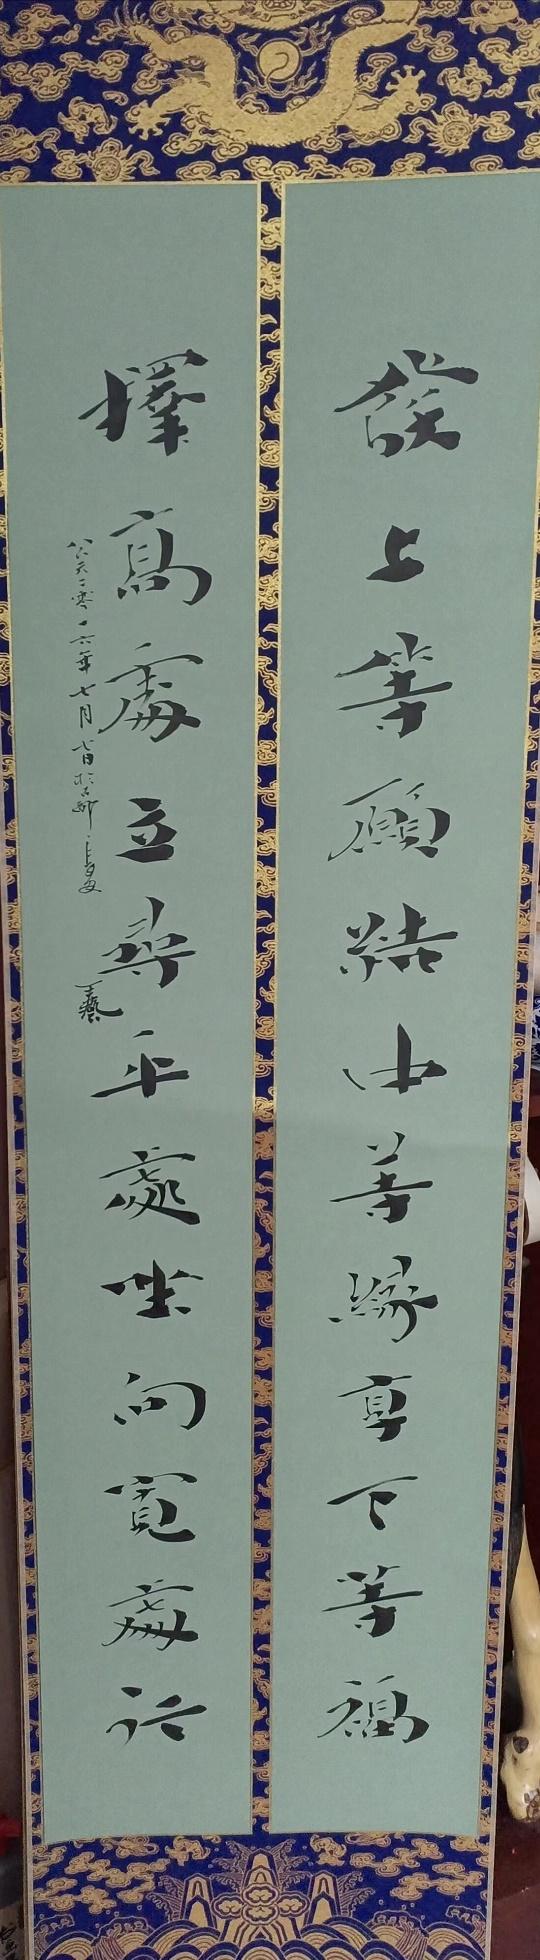 發上等願結中等緣享下等福
擇高處立尋平處坐向寬處行
公元二零一六年七月
王藝